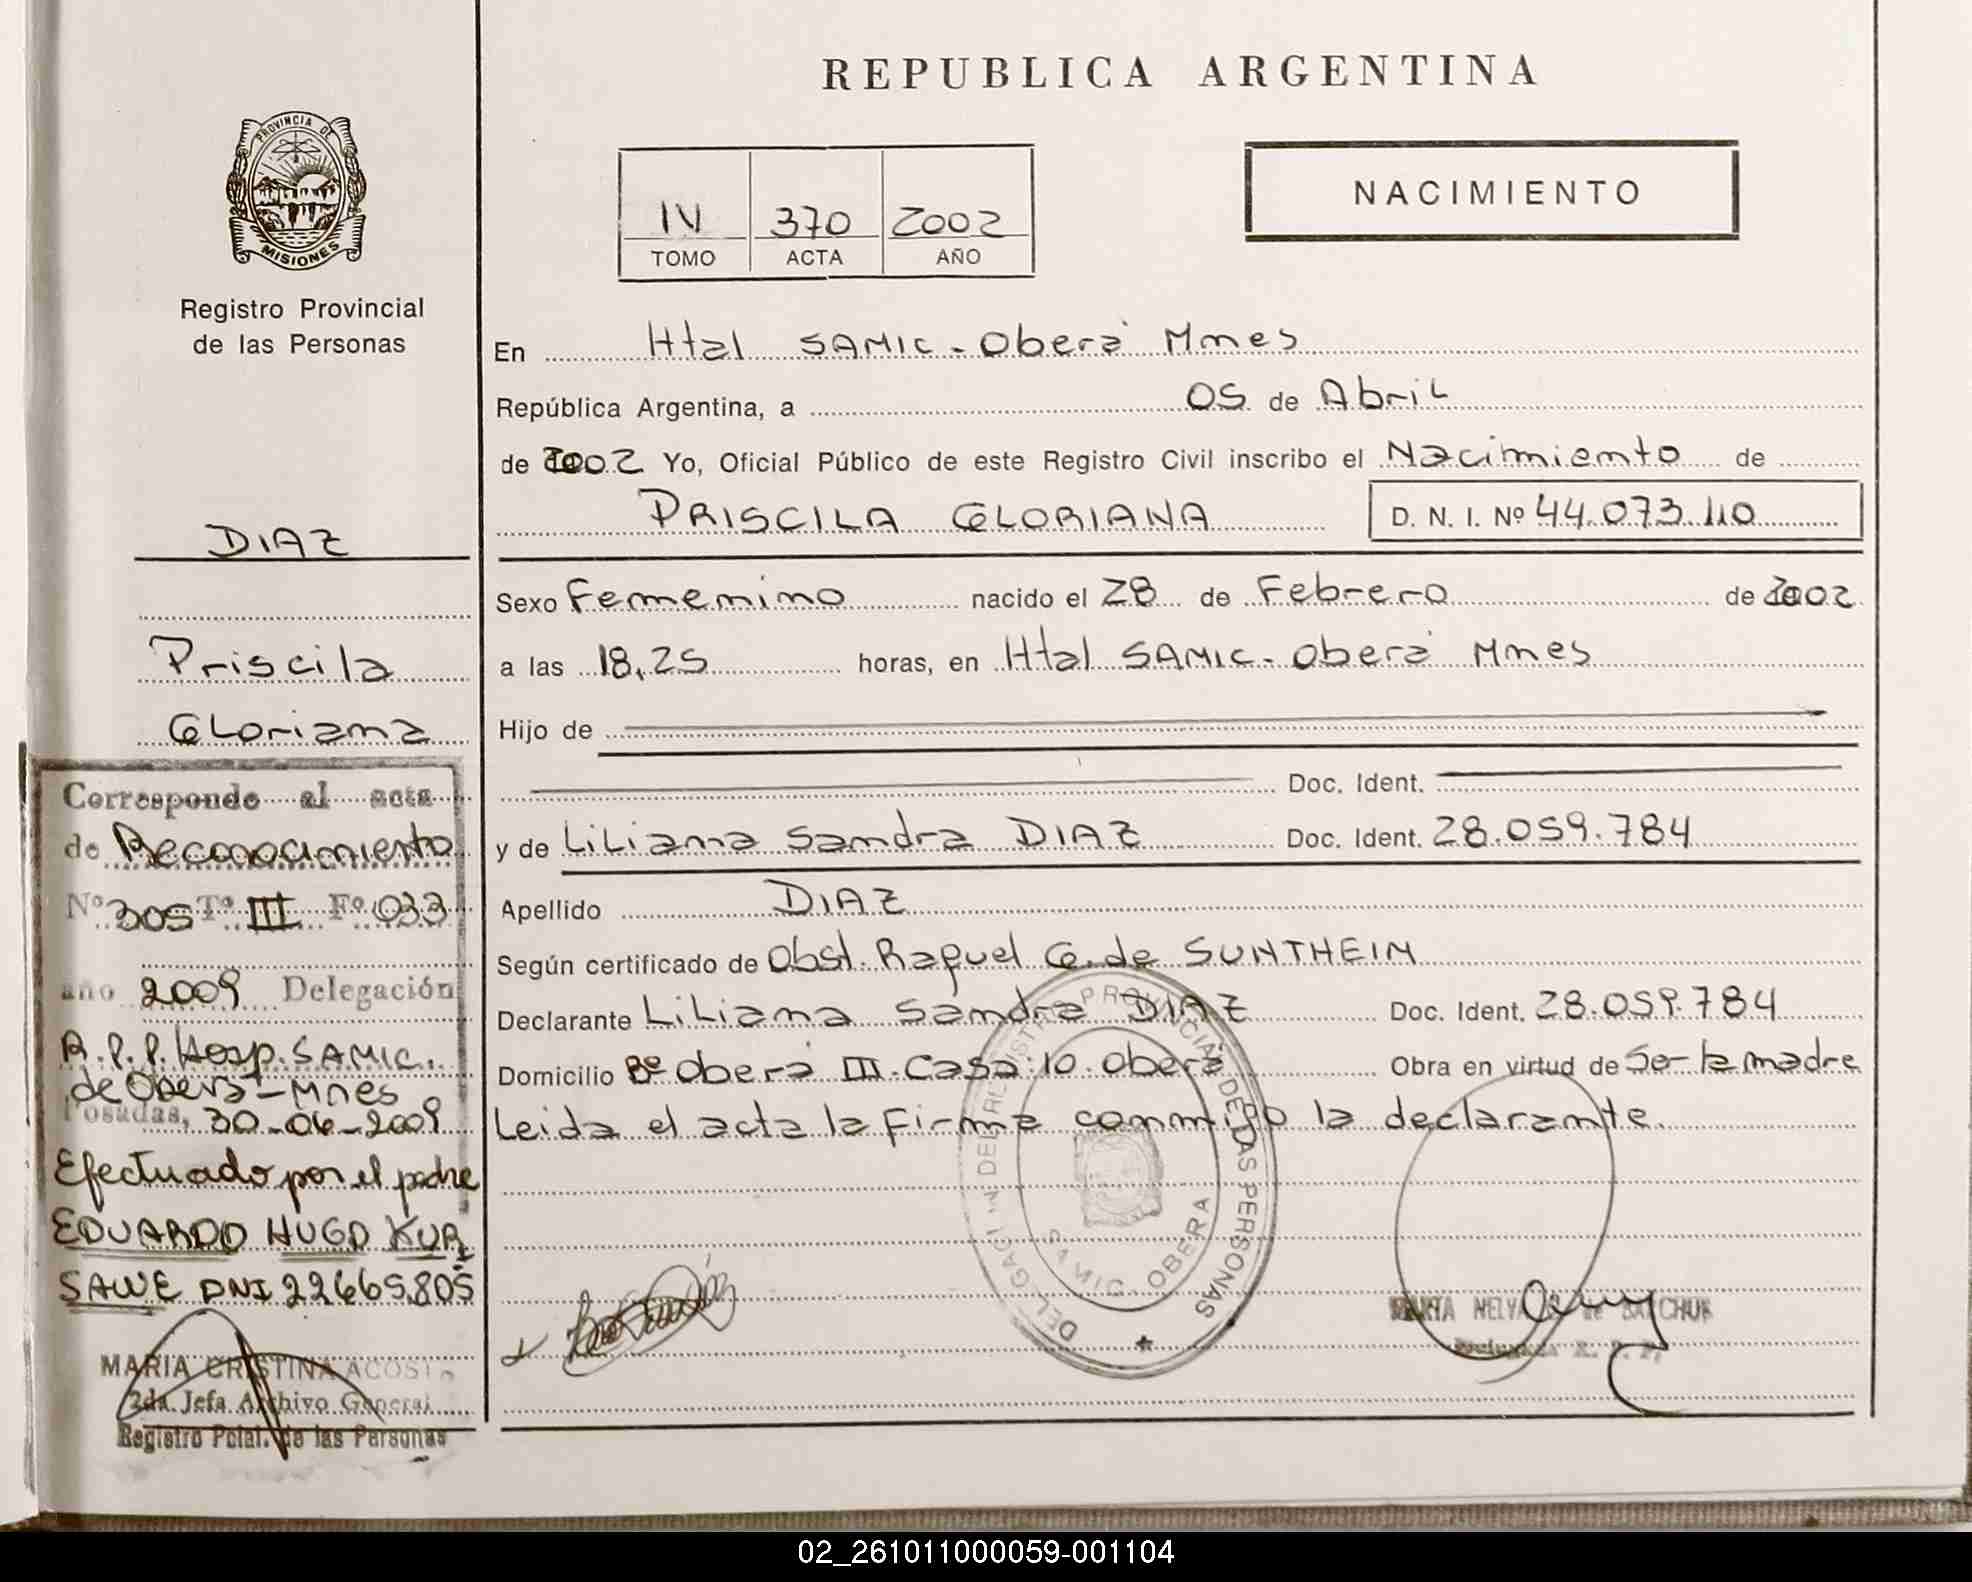 REPUBLICA ARGENTINA
PROVINCIA DE
MISIONES
Registro Provincial
de las Personas
NACIMIENTO
IV 370 2002
TOMO ACTA AÑO
En Htal SAMIC - Oberá Mnes
República Argentina, a 05 de Abril
de 2002 Yo, Oficial Público de este Registro Civil inscribo el Nacimiento de
PRISCILA GLORIANA D. N. I. Nº 44.073.110
Sexo Femenino nacido el 28 de Febrero de 2002
a las 18,25 horas, en Htal SAMIC - Oberá Mnes
Hijo de
Doc. Ident.
y de Liliana Sandra DIAZ Doc. Ident. 28.059.784
Apellido DIAZ
Según certificado de Obst. Raquel G. de SUNTHEIM
Declarante Liliana Sandra DIAZ Doc. Ident. 28.059.784
Domicilio Bº Oberá III. Casa 10. Oberá Obra en virtud de Ser la madre
Leida el acta la Firma conmigo la declarante.
DIAZ
Priscila
Gloriana
Corresponde al acta
de Reconocimiento
Nº 305 Tº III Fº 033
año 2009 Delegación
R.P.P. Hosp. SAMIC.
de Oberá - Mnes
Posadas, 30-06-2009
Efectuado por el padre
EDUARDO HUGO KUR
SAWE DNI 22665.805
MARIA CRISTINA ACOSTA
2da. Jefa Archivo General
Registro Pcial. de las Personas
DELEGACION DEL REGISTRO PROVINCIAL DE LAS PERSONAS
SAMIC - OBERA
MARTA NELVA
02_261011000059-001104